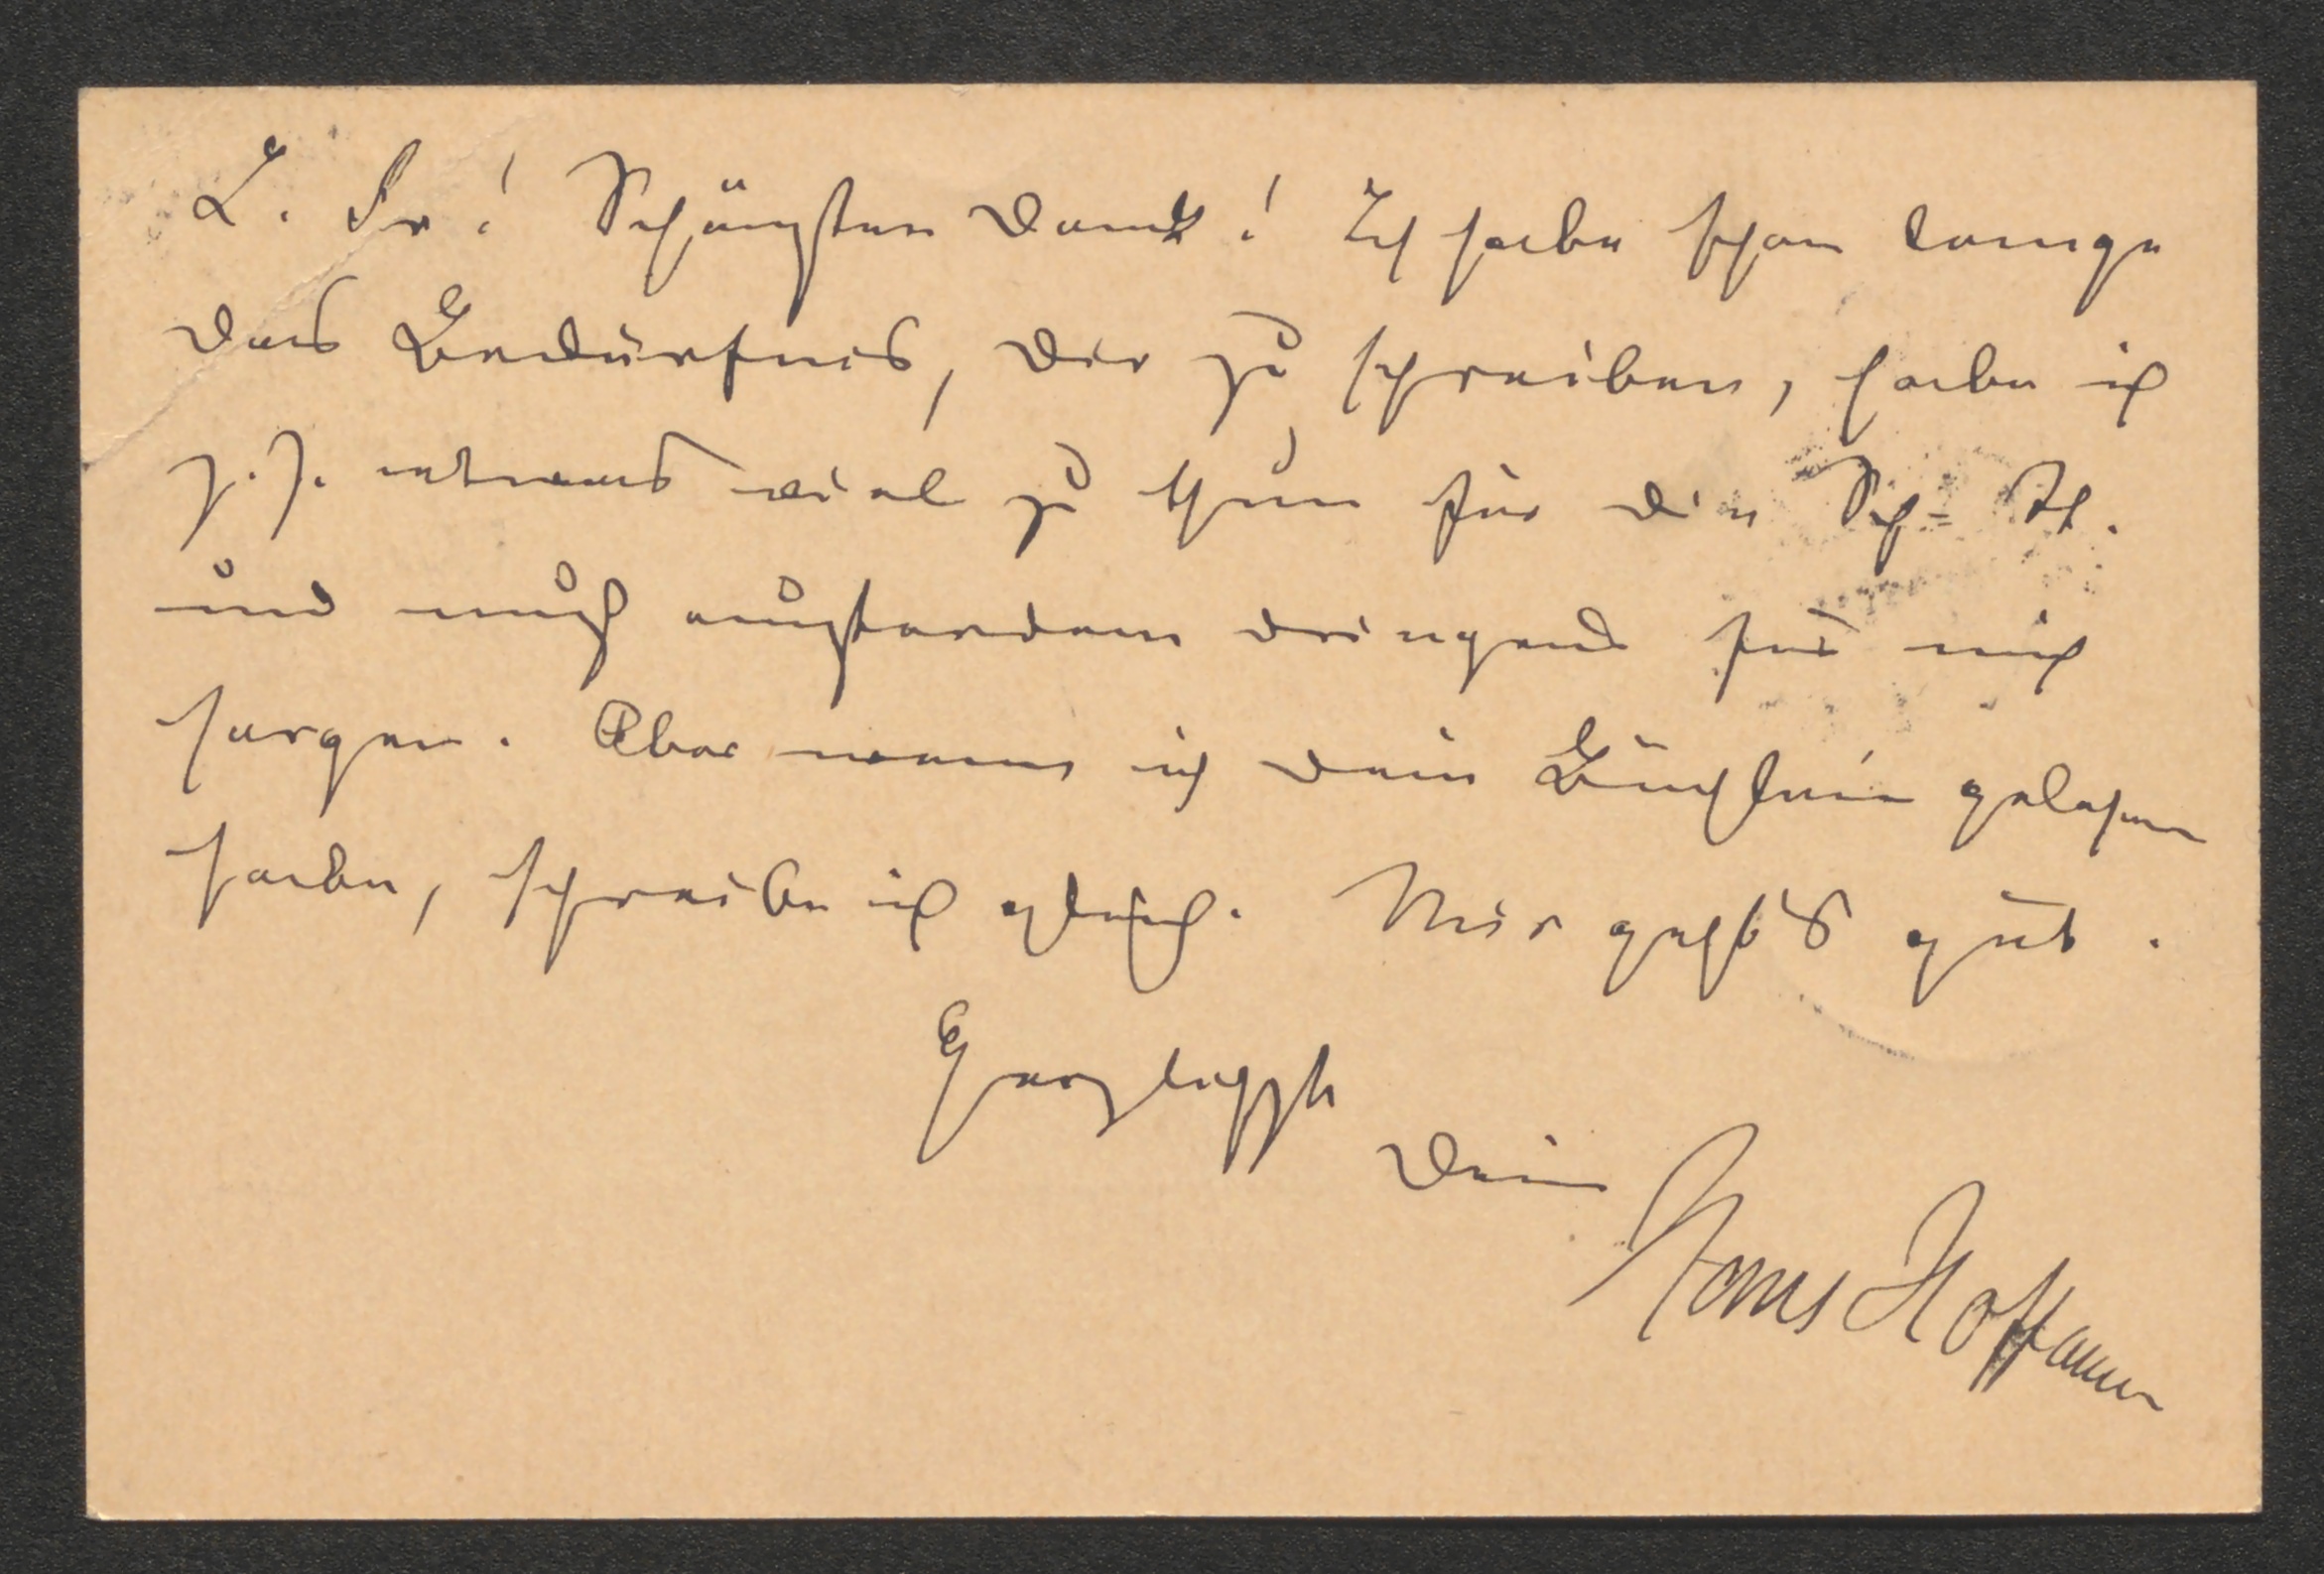 L. Fr! Schönsten Dank! Ich habe schon lange
das Bedürfnis, dir zu schreiben, habe ich
z. Z. etwas viel zu thun für die Sch=St.
und muß außerdem dringend für mich
sorgen. Aber wenn ich dein Büchlein gelesen
habe, schreibe ich gleich. Mir geht's gut.
Herzlichst
Dein
Hans Hoffmann